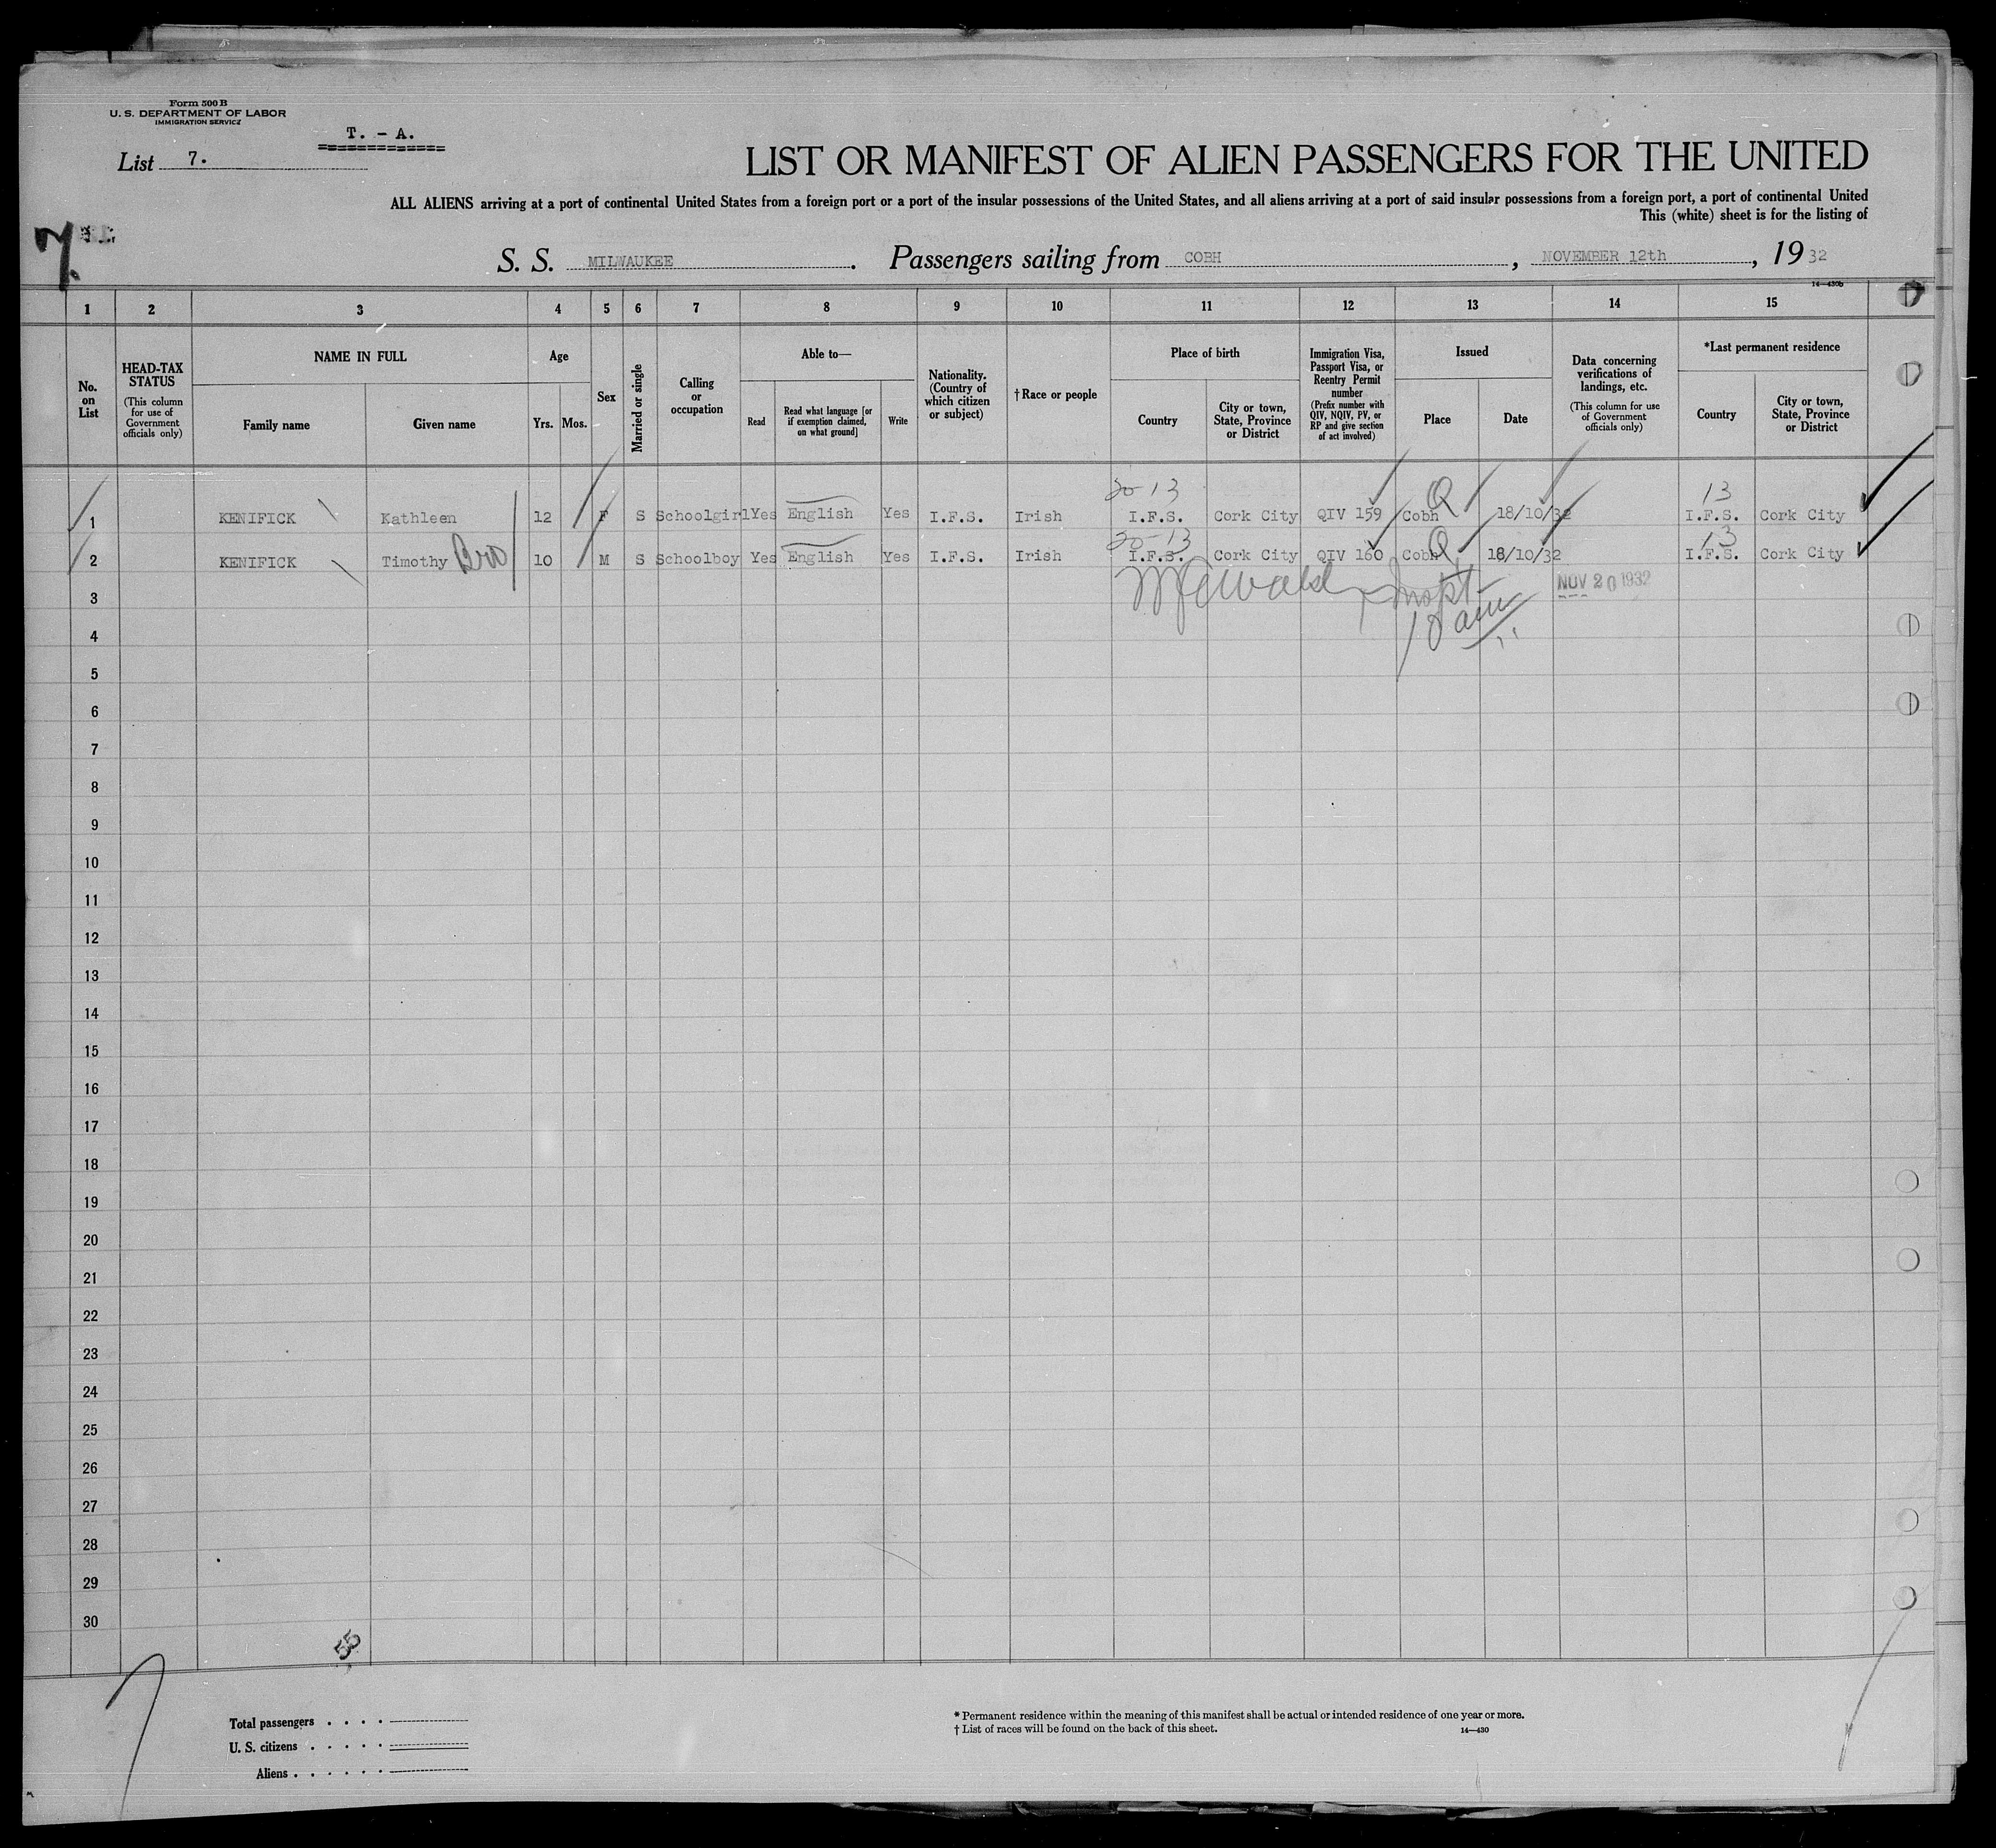 Form 500 B
U. S. DEPARTMENT OF LABOR
IMMIGRATION SERVICE
T. - A.
List 7.
LIST OR MANIFEST OF ALIEN PASSENGERS FOR THE UNITED
ALL ALIENS arriving at a port of continental United States from a foreign port or a port of the insular possessions of the United States, and all aliens arriving at a port of said insular possessions from a foreign port, a port of continental United
This (white) sheet is for the listing of
7.
S. S. MILWAUKEE. Passengers sailing from COBH, NOVEMBER 12th, 19 32
14—430b
1 2 3 4 5 6 7 8 9 10 11 12 13 14 15
No. on List
HEAD-TAX STATUS (This column for use of Government officials only)
NAME IN FULL
Family name
Given name
Age
Yrs.
Mos.
Sex
Married or single
Calling or occupation
Able to—
Read
Read what language [or if exemption claimed, on what ground]
Write
Nationality. (Country of which citizen or subject)
† Race or people
Place of birth
Country
City or town, State, Province or District
Immigration Visa, Passport Visa, or Reentry Permit number (Prefix number with QIV, NQIV, PV, or RP and give section of act involved)
Issued
Place
Date
Data concerning verifications of landings, etc. (This column for use of Government officials only)
*Last permanent residence
Country
City or town, State, Province or District
20-13 Q 13
1 KENIFICK Kathleen 12 F S Schoolgirl Yes English Yes I.F.S. Irish I.F.S. Cork City QIV 159 Cobh 18/10/32 I.F.S. Cork City
20-13 Q 13
2 KENIFICK Timothy Bro 10 M S Schoolboy Yes English Yes I.F.S. Irish I.F.S. Cork City QIV 160 Cobh 18/10/32 I.F.S. Cork City
3 NOV 20 1932
4
5
6
7
8
9
10
11
12
13
14
15
16
17
18
19
20
21
22
23
24
25
26
27
28
29
30
55
Total passengers . . . .
U. S. citizens . . . . .
Aliens . . . . . .
* Permanent residence within the meaning of this manifest shall be actual or intended residence of one year or more.
† List of races will be found on the back of this sheet.
14—430